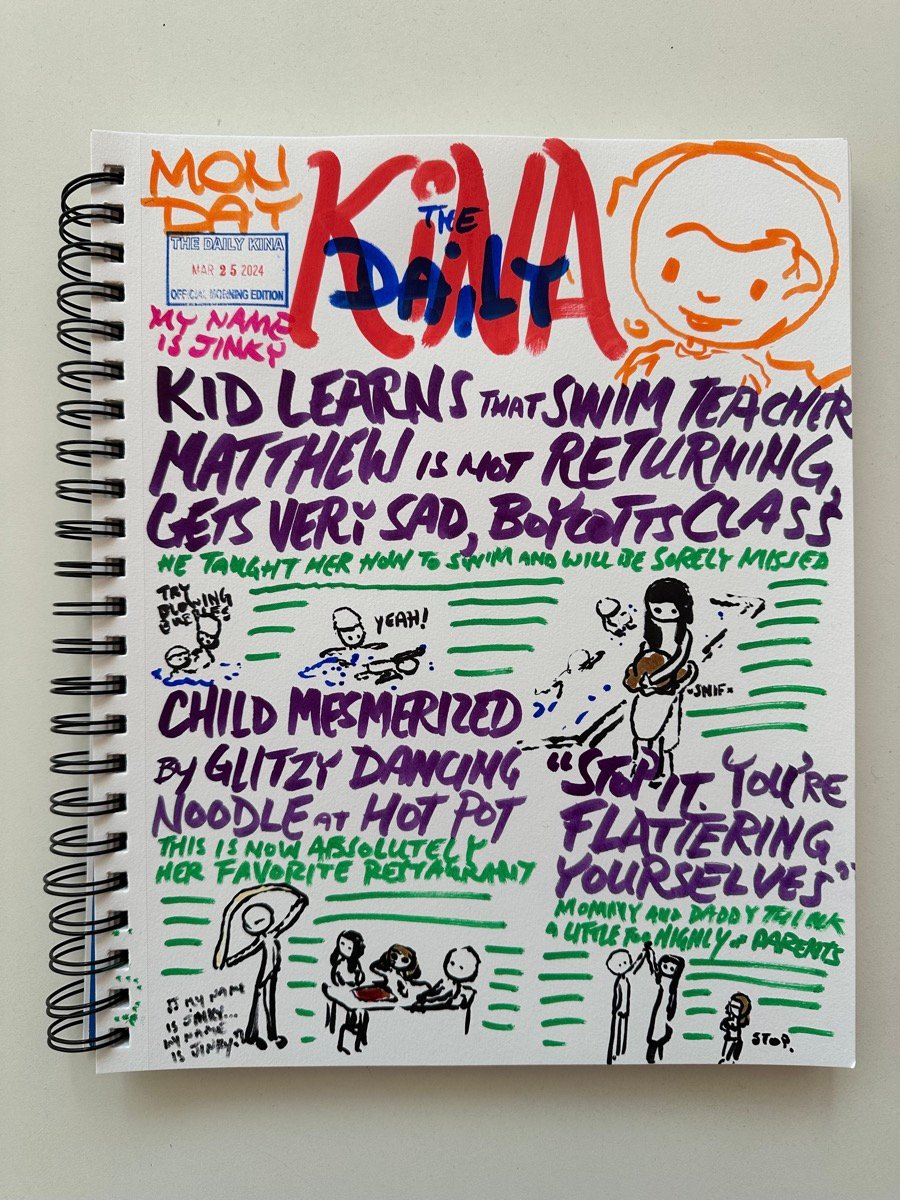 MON
DAY
THE DAILY KINA
MAR 25 2024
OFFICIAL MORNING EDITION
MY NAME
IS JINKY
THE
DAiLY
KiNA
KID LEARNS THAT SWIM TEACHER
MATTHEW IS NOT RETURNING,
GETS VERY SAD, BOYCOTTS CLASS
HE TAUGHT HER HOW TO SWIM AND WILL BE SORELY MISSED
TRY
BLOWING
BUBBLES
YEAH!
*SNIF*
CHILD MESMERIZED
BY GLITZY DANCING
NOODLE AT HOT POT
THIS IS NOW ABSOLUTELY
HER FAVORITE RESTAURANT
♫ MY NAME
IS JINKY...
MY NAME
IS JINKY. ♫
"STOP IT. YOU'RE
FLATTERING
YOURSELVES"
MOMMY AND DADDY THINK
A LITTLE TOO HIGHLY OF PARENTS
STOP.